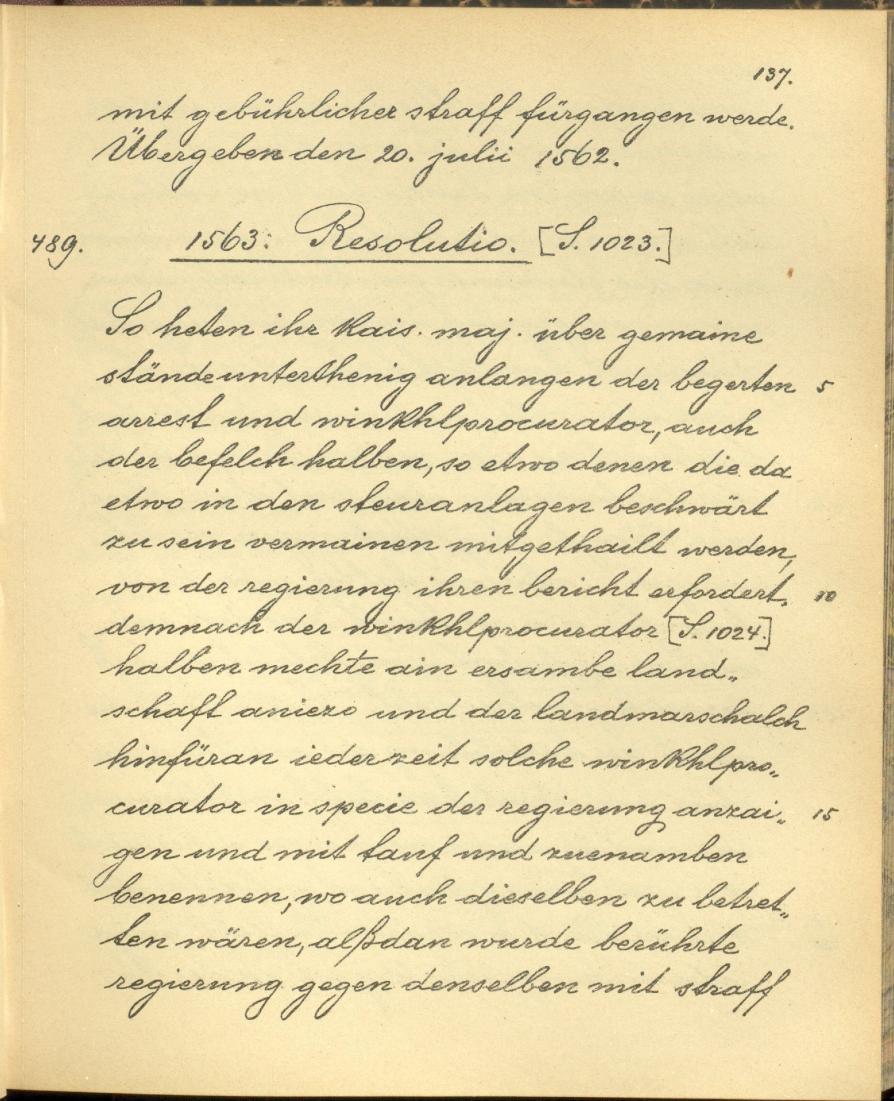 137.
mit gebührlicher straff fürgangen werde.
Übergeben den 20. julii 1562.
489. 1563: Resolutio. [S. 1023.]
So heten ihr Kais. maj. über gemaine
stände unterthenig anlangen der begerten 5
arrest und winkhlprocurator, auch
der befelch halben, so etwo denen die da
etwo in den steuranlagen beschwärt
zu sein vermainen mitgethailt werden,
von der regierung ihren bericht erfordert. 10
demnach der winkhlprocurator [S. 1024.]
halben mechte ain ersambe land„
schaft aniezo und der landmarschalch
hinfüran iederzeit solche winkhlpro„
curator in specie der regierung anzai„ 15
gen und mit tauf und zuenamben
benennen, wo auch dieselben zu betret„
ten wären, alßdan wurde berührte
regierung gegen denselben mit straff